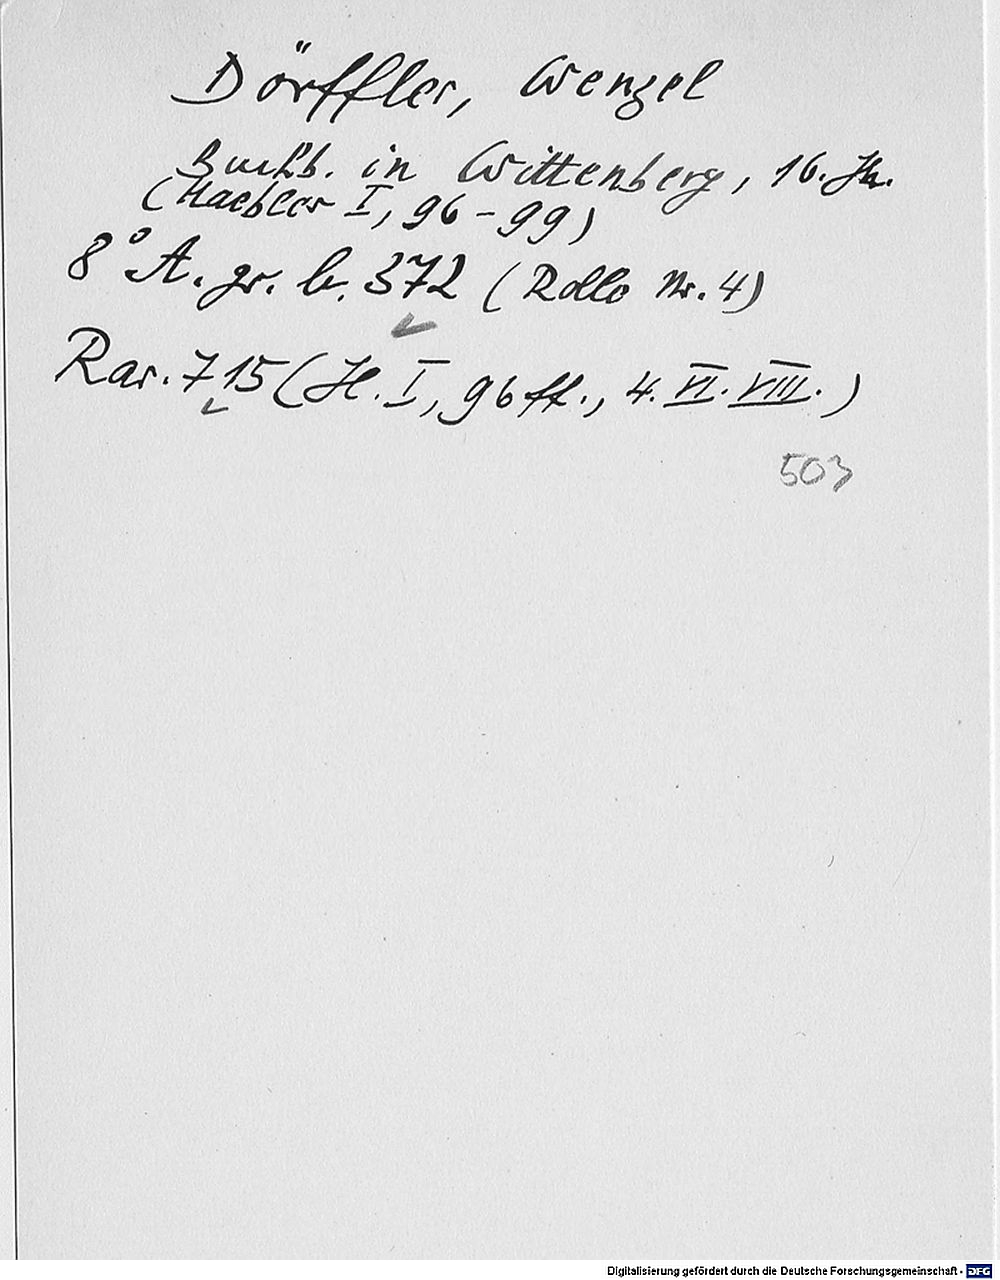 Dörffler, Wenzel
Buchb. in Wittenberg, 16. Jh.
(Haebler I, 96-99)
8° A. gr. b. 372 (Rolle Nr. 4)
Rar. 715 (H. I, 96 ff., 4. VI. VIII.)
503
Digitalisierung gefördert durch die Deutsche Forschungsgemeinschaft - DFG